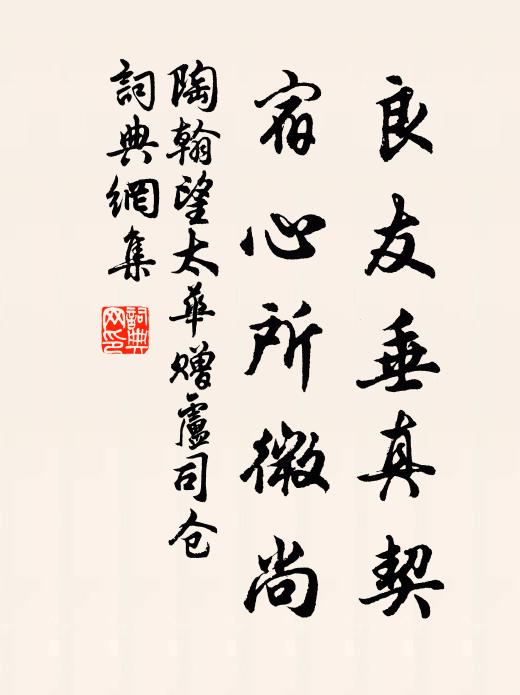 良友垂真契
宿心所微尚
陶翰望太華贈盧司仓
詞典網集
詞典网印